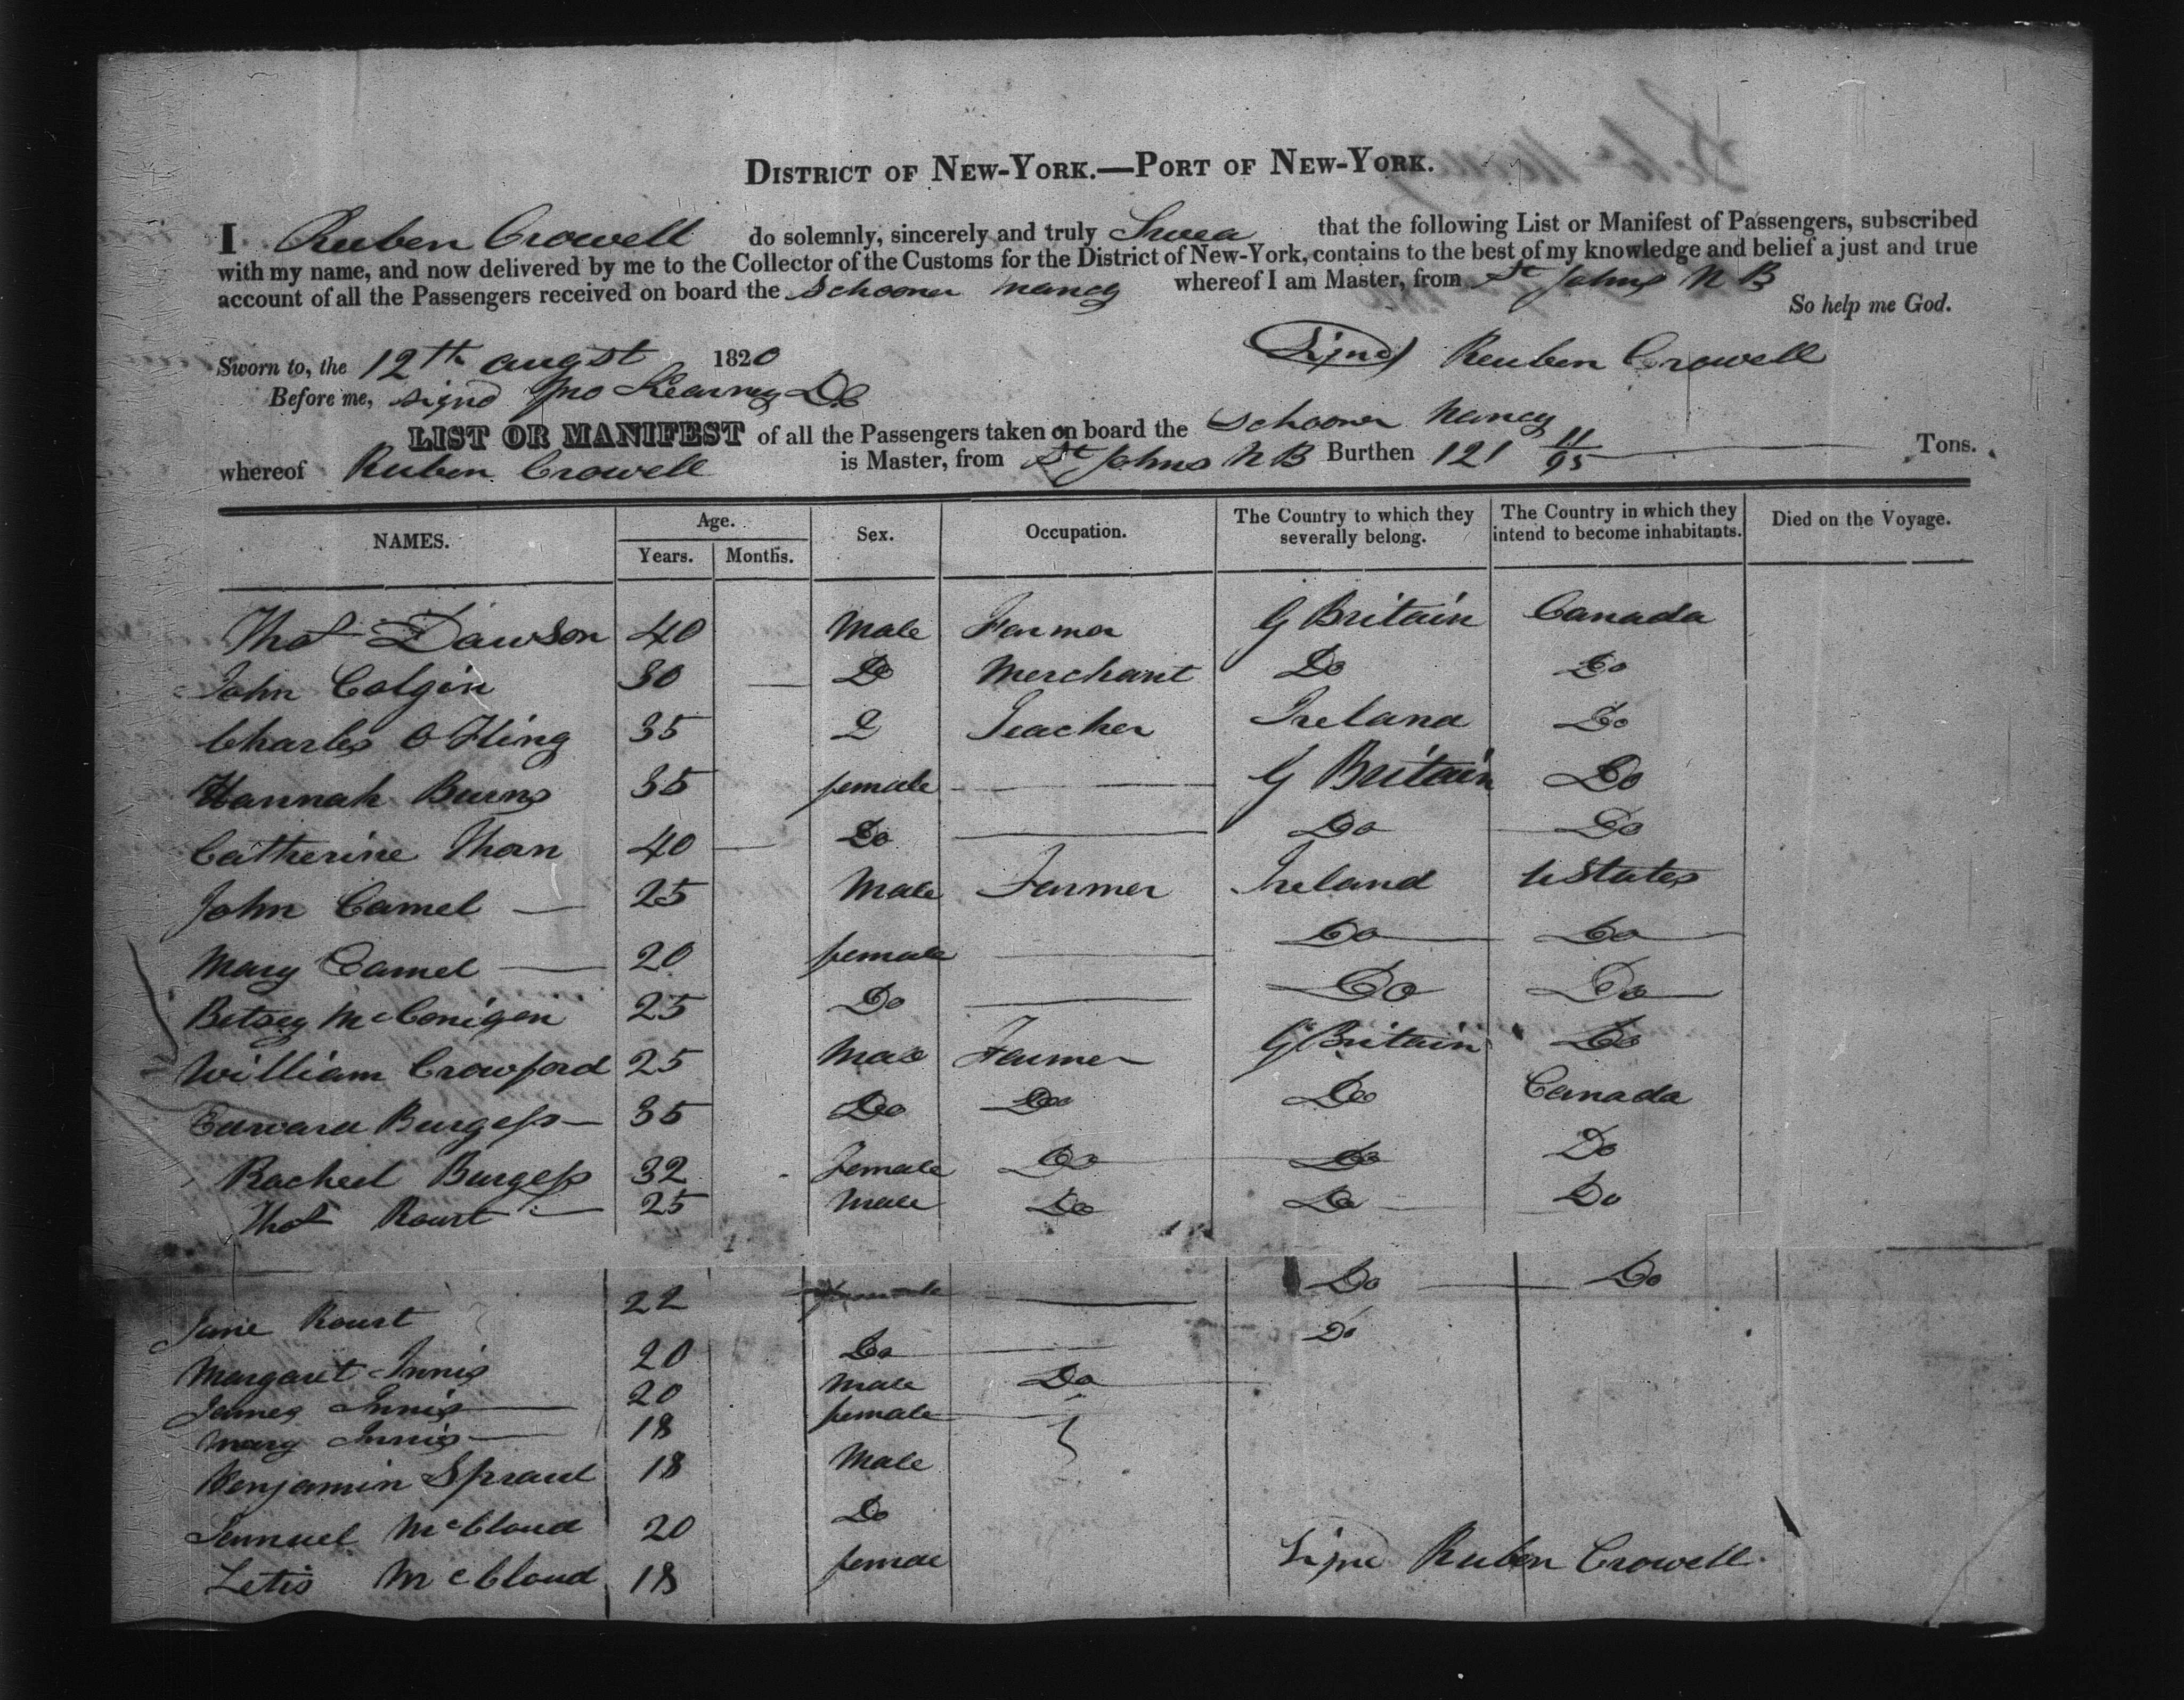 DISTRICT OF NEW-YORK.—PORT OF NEW-YORK.
I Reuben Crowell do solemnly, sincerely and truly Swea that the following List or Manifest of Passengers, subscribed
with my name, and now delivered by me to the Collector of the Customs for the District of New-York, contains to the best of my knowledge and belief a just and true
account of all the Passengers received on board the Schooner Nancy whereof I am Master, from St Johns N B
So help me God.
Sworn to, the 12th augst 1820 Signd Reuben Crowell
Before me, signd Jno Kearney DC
LIST OR MANIFEST of all the Passengers taken on board the Schooner Nancy
whereof Reuben Crowell is Master, from St Johns N B Burthen 121 11/95 Tons.
NAMES. Age. Years. Months. Sex. Occupation. The Country to which they severally belong. The Country in which they intend to become inhabitants. Died on the Voyage.
Thos Dawson 40 Male Farmer G Britain Canada
John Colgin 30 Do Merchant Do Do
Charles O King 35 D Teacher Ireland Do
Hannah Burns 35 female G Britain Do
Catherine Thorn 40 Do Do Do
John Camel 25 Male Farmer Ireland U States
Mary Camel 20 female Do Do
Betsey McConigen 25 Do Do Do
William Crowford 25 Male Farmer G Britain Do
Edward Burgess 35 Do Do Do Canada
Rachel Burgess 32 Female Do Do Do
Thos Rourt 25 Male Do Do Do
Jane Rourt 22 female Do Do
Margaret Innis 20 Do Do
James Innis 20 Male Do
Mary Innis 18 female
Benjamin Spraul 18 Male
Samuel McCloud 20 Do
Letis McCloud 18 female
Signd Reuben Crowell